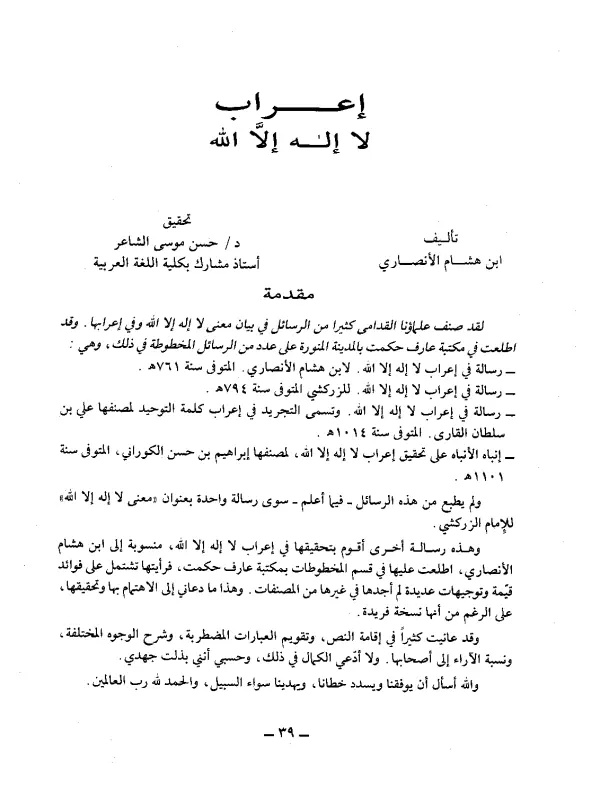 إعـــراب
لا إلـٰه إلاَّ الله
تأليف
ابن هشام الأنصاري
تحقيق
د/ حسن موسى الشاعر
أستاذ مشارك بكلية اللغة العربية
مقدمة
لقد صنف علماؤنا القدامى كثيرا من الرسائل في بيان معنى لا إله إلا الله وفي إعرابها. وقد
اطلعت في مكتبة عارف حكمت بالمدينة المنورة على عدد من الرسائل المخطوطة في ذلك، وهي:
ــ رسالة في إعراب لا إله إلا الله. لابن هشام الأنصاري. المتوفى سنة ٧٦١هـ.
ــ رسالة في إعراب لا إله إلا الله. للزركشي المتوفى سنة ٧٩٤هـ.
ــ رسالة في إعراب لا إله إلا الله. وتسمى التجريد في إعراب كلمة التوحيد لمصنفها علي بن
سلطان القارى. المتوفى سنة ١٠١٤هـ.
ــ إنباه الأنباه على تحقيق إعراب لا إله إلا الله، لمصنفها إبراهيم بن حسن الكوراني، المتوفى سنة
١١٠١هـ.
ولم يطبع من هذه الرسائل ـ فيما أعلم ـ سوى رسالة واحدة بعنوان «معنى لا إله إلا الله»
للإمام الزركشي.
وهذه رسالة أخرى أقوم بتحقيقها في إعراب لا إله إلا الله، منسوبة إلى ابن هشام
الأنصاري، اطلعت عليها في قسم المخطوطات بمكتبة عارف حكمت، فرأيتها تشتمل على فوائد
قيّمة وتوجيهات عديدة لم أجدها في غيرها من المصنفات. وهذا ما دعاني إلى الاهتمام بها وتحقيقها،
على الرغم من أنها نسخة فريدة.
وقد عانيت كثيراً في إقامة النص، وتقويم العبارات المضطربة، وشرح الوجوه المختلفة،
ونسبة الآراء إلى أصحابها. ولا أدّعي الكمال في ذلك، وحسبي أنني بذلت جهدي.
والله أسأل أن يوفقنا ويسدد خطانا، ويهدينا سواء السبيل، والحمد لله رب العالمين.
ــ ٣٩ ــ